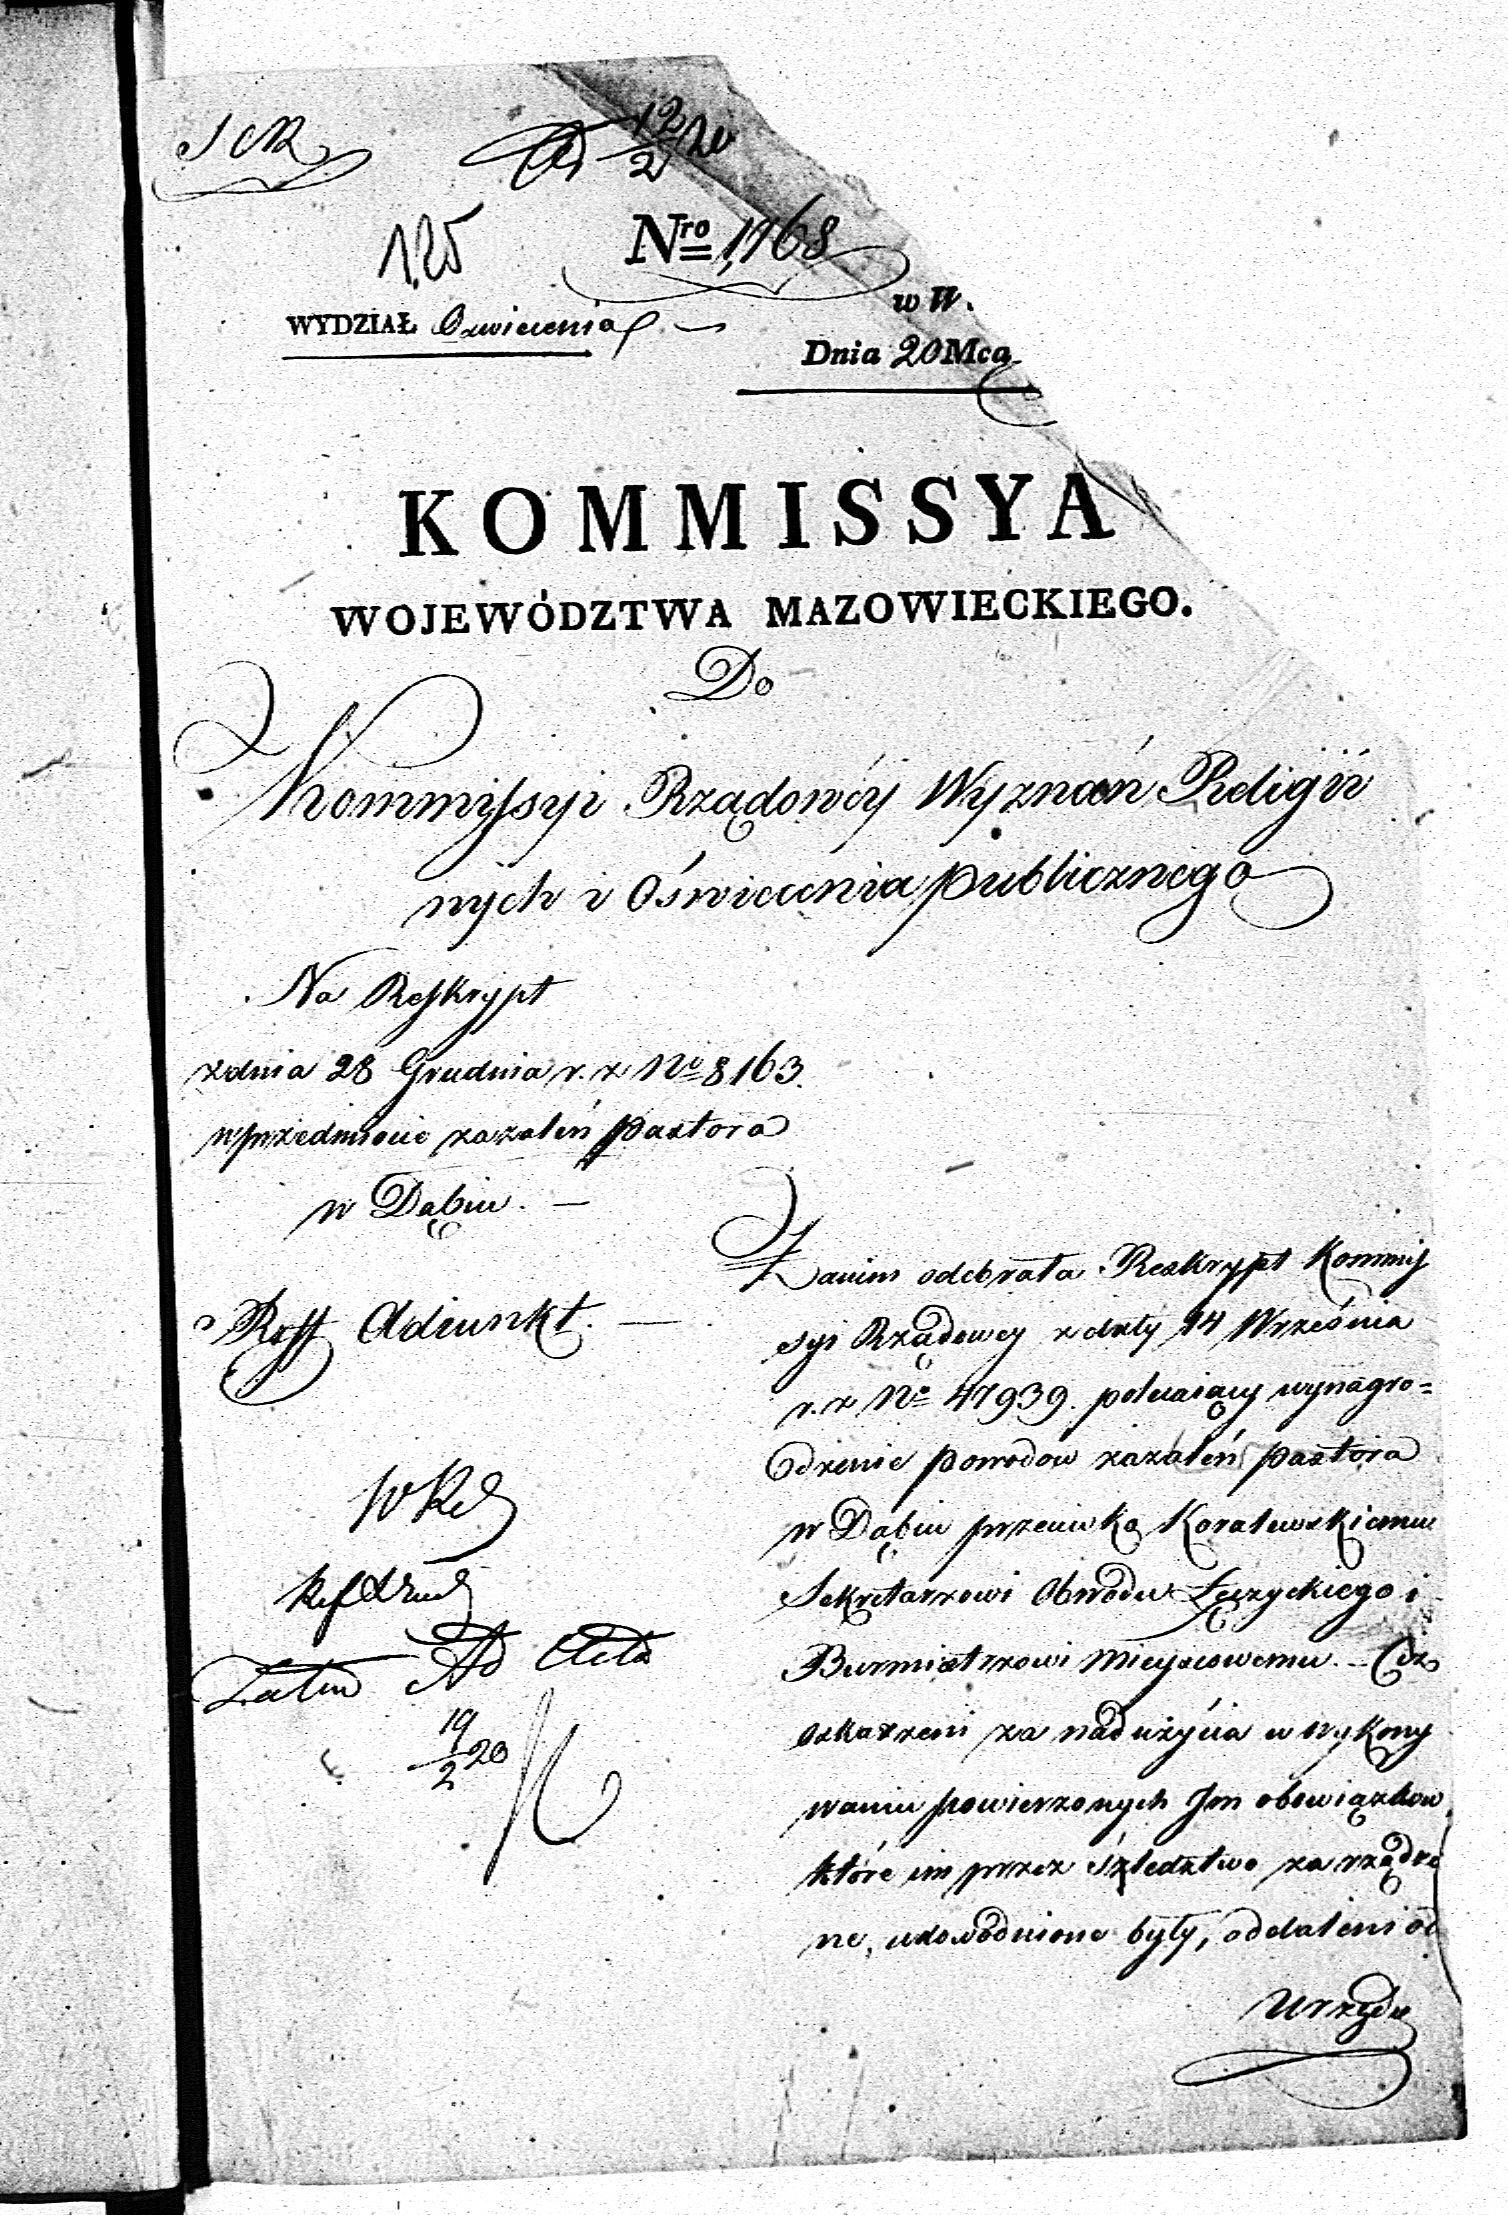 12/2 20
125 Nro 1,768
w W.
WYDZIAŁ Oswiecenia
Dnia 20 Mca
KOMMISSYA
WOJEWÓDZTWA MAZOWIECKIEGO.
Do
Kommissyi Rządowéy Wyznań Religii
nych i Oświecenia publicznego
Na Reskrypt
z dnia 28 Grudnia r. z. No 8163.
w przedmiocie zażaleń Pastora
w Dąbiu. —
Adiunkt. —
Ad Acta
19/2 20
Zanim odebrała Reskrypt Kommis
syi Rządowey z daty 14 Września
r. z. No 47939. polecaiący wynagro=
dzenie powodow zazaleń pastora
w Dąbiu przeciwko Koralewskiemu
Sekretarzowi Obwodu Łęczyckiego i
Burmistrzowi Mieyscowemu. — Ciż
oskarzeni za nadużycia w wykony
waniu powierzonych Jm obowiązkow
które im przez śledztwo zarządzo
ne, udowodnione były, oddaleni od
Urzędu